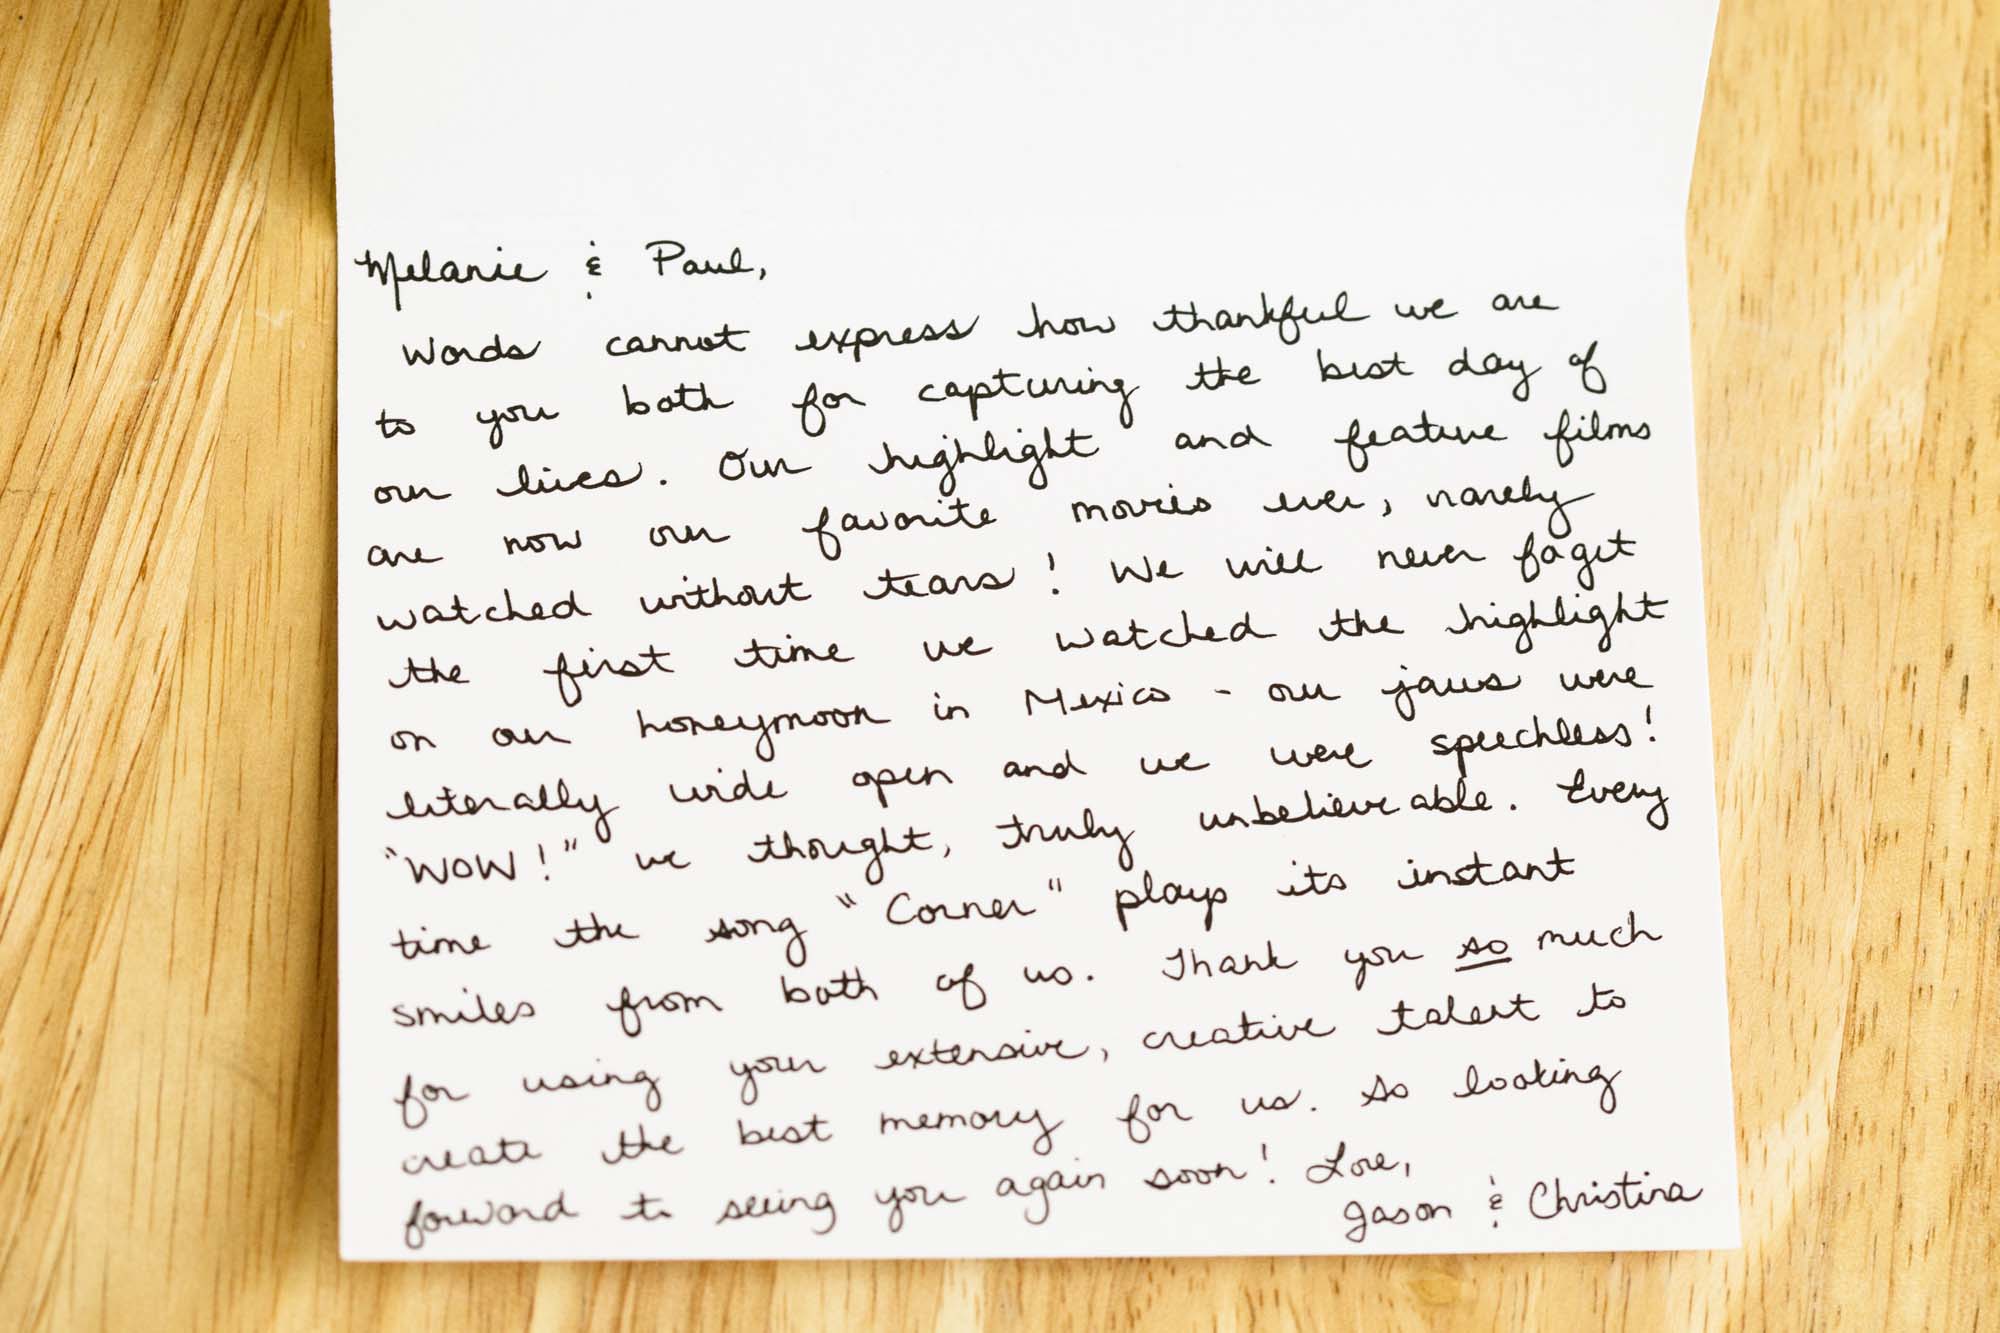 Melanie & Paul,
Words cannot express how thankful we are
to you both for capturing the best day of
our lives. Our highlight and feature films
are now our favorite movies ever, rarely
watched without tears! We will never forget
the first time we watched the highlight
on our honeymoon in Mexico - our jaws were
literally wide open and we were speechless!
"WOW!" we thought, truly unbelieveable. Every
time the song "Corner" plays its instant
smiles from both of us. Thank you so much
for using your extensive, creative talent to
create the best memory for us. So looking
forward to seeing you again soon! Love,
Jason & Christina